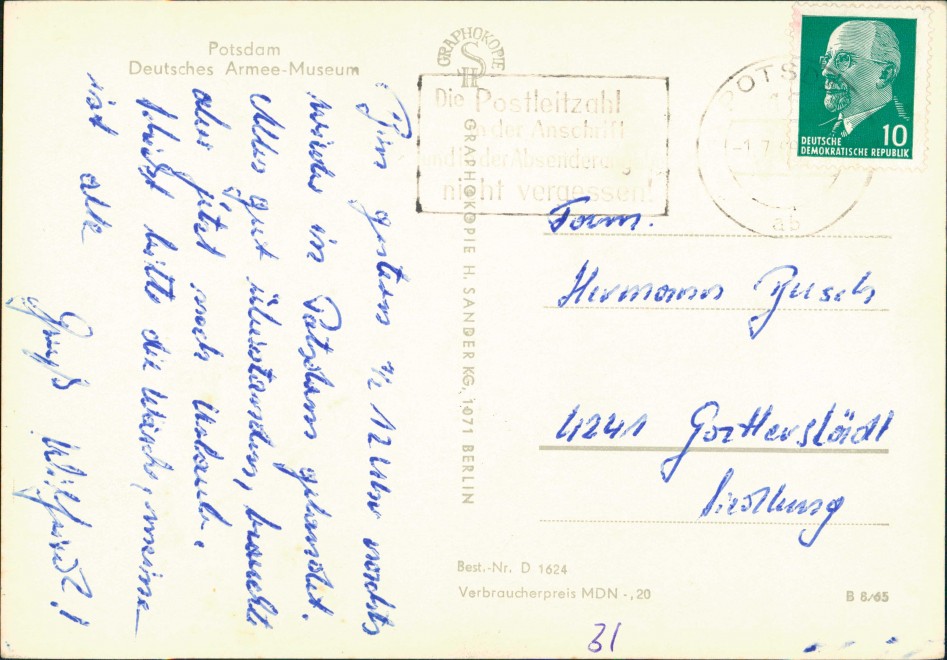 Potsdam
Deutsches Armee-Museum
GRAPHOKOPIE
H S
Die Postleitzahl
in der Anschrift
und in der Absenderangabe
nicht vergessen!
POTSDAM
-1.7.
ab
DEUTSCHE
DEMOKRATISCHE REPUBLIK
10
Bin gestern ½ 12 Uhr nachts
wieder in Potsdam gelandet.
Alles gut überstanden, brauchte
aber jetzt noch Urlaub.
Schickt bitte die Wäsche, meine
ist alle
Gruß Wilfried!
GRAPHOKOPIE H. SANDER KG, 1071 BERLIN
Fam.
Hermann Busch
4241
Siedlung
Best.-Nr. D 1624
Verbraucherpreis MDN -,20
B 8/65
31